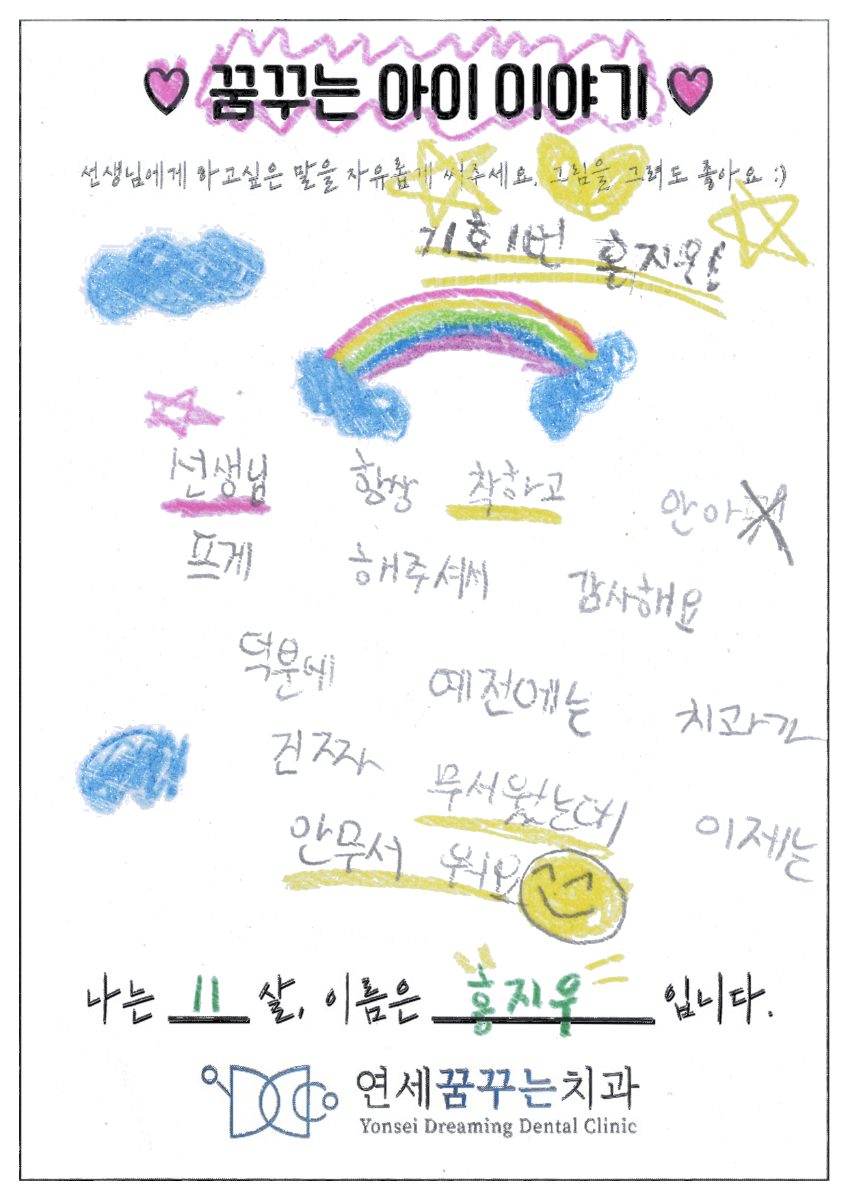 꿈꾸는 아이 이야기
선생님에게 하고싶은 말을 자유롭게 써주세요. 그림을 그려도 좋아요 :)
기호 1번 홍지우
선생님 항상 착하고 안아
프게 해주셔서 감사해요
덕분에 예전에는 치과가
진짜 무서웠는데 이제는
안무서 워요
나는 11 살, 이름은 홍지우 입니다.
연세꿈꾸는치과
Yonsei Dreaming Dental Clinic